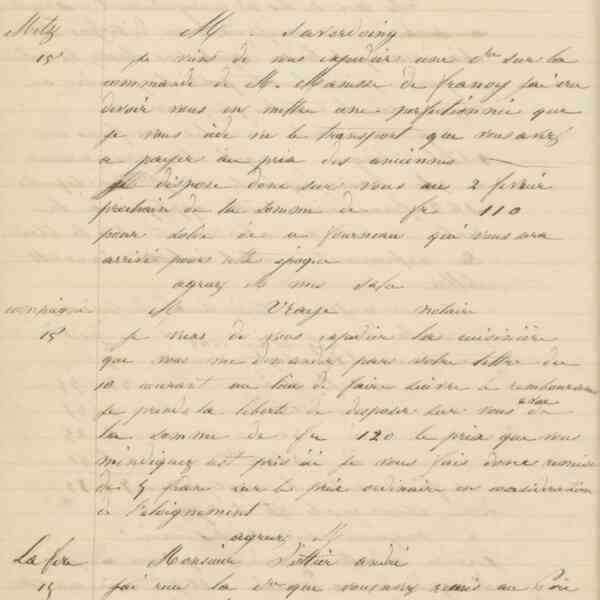 Metz M Saverdoing
15 je viens de vous expedier une Cre sur la
commande de M. Manisse de francy j'ai cru
devoir vous en mettre une perfectionnée que
je vous cède ne le transport que vous avez
a payer au prix des anciennes
Je dispose donc sur vous au 2 fevrier
prochain de la somme de fr 110
pour solde de ce fourneau qui vous sera
arrivé pour cette époque
agreez M mes salu
compiegne M Vraye notaire
15 je viens de vous expedier la cuisinière
que vous me demandez par votre lettre du
10 courant au lieu de faire suivre en remboursem
je prends la liberté de disposer sur vous a vue de
la somme de fr 120 le prix que vous
m'indiquez est pris ici je vous fais donc remise
de 5 francs sur le prix ordinaire en consideration
de l'eloignement
agreez M
La fere Monsieur andré
15 j'ai recu la que vous avez remis au